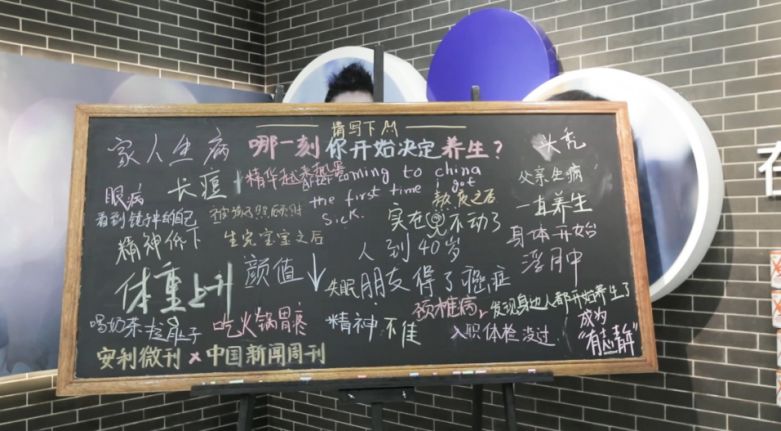 请写下
哪一刻你开始决定养生?
家人生病
头秃
长痘
coming to china
the first time i got
sick.
父亲生病
眼病
熬夜之后
一直养生
看到镜子里的自己
实在 不动了
身体开始
浮肿
精神低下
生完宝宝之后
人到40岁
颜值↓
体重上升
失眠
朋友得了癌症
颈椎病,
发现身边人都开始养生了
喝奶茶拉肚子
吃火锅胃疼
精神不佳
入职体检没过.
成为
安利微刊 x 中国新闻周刊
在